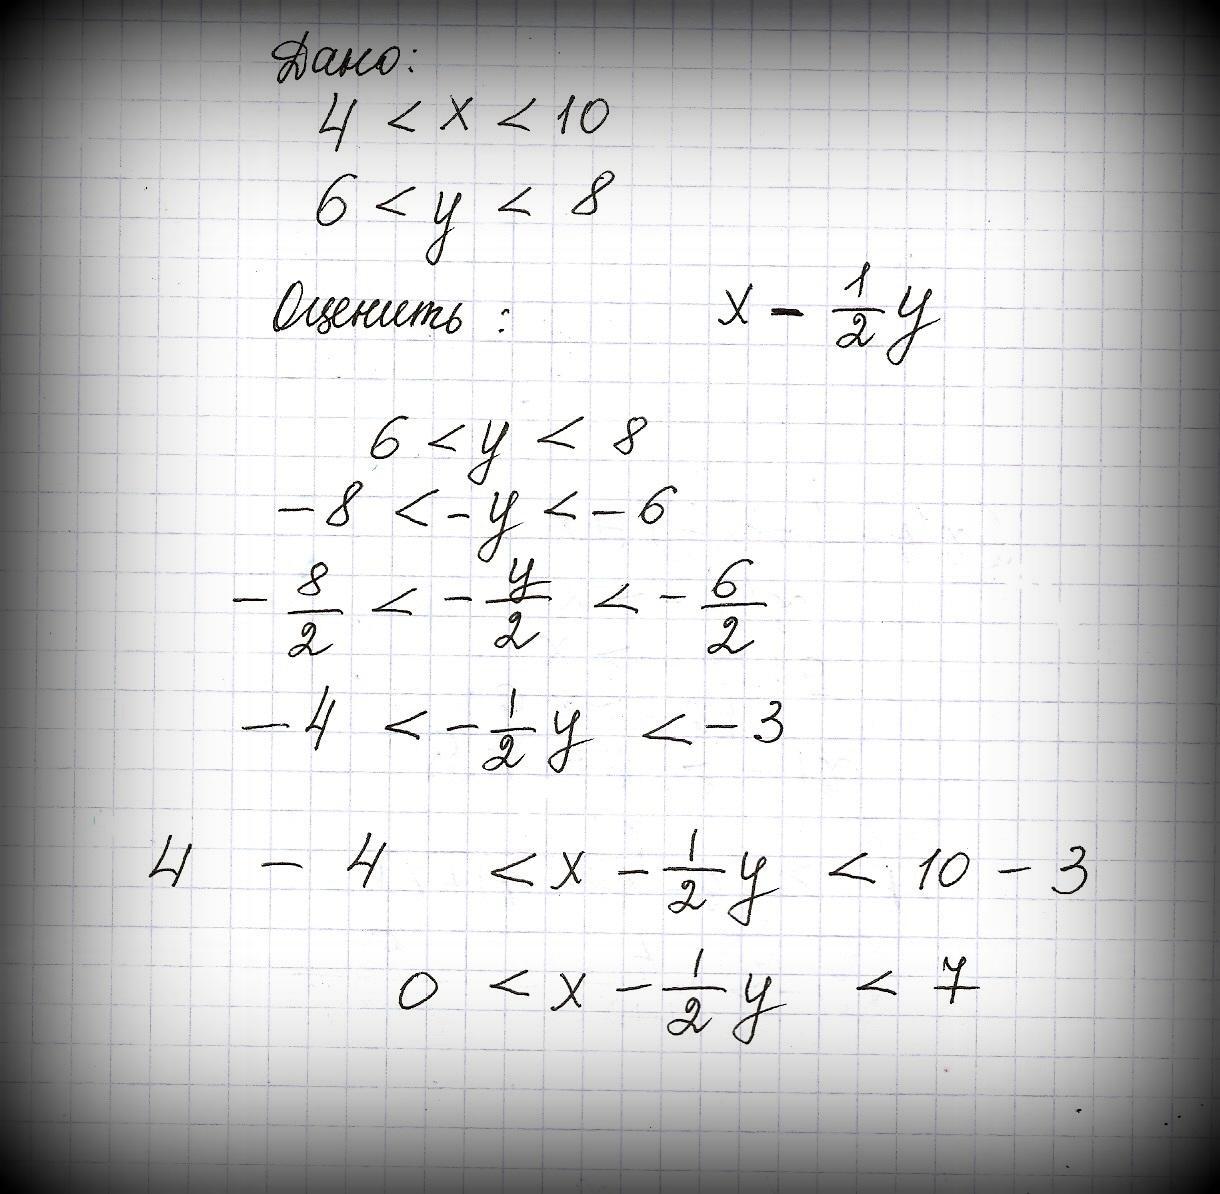 Дано:
4 < x < 10
6 < y < 8
Оценить : x - 1/2 y
6 < y < 8
-8 < -y < -6
- 8/2 < - y/2 < - 6/2
-4 < - 1/2 y < -3
4 - 4 < x - 1/2 y < 10 - 3
0 < x - 1/2 y < 7